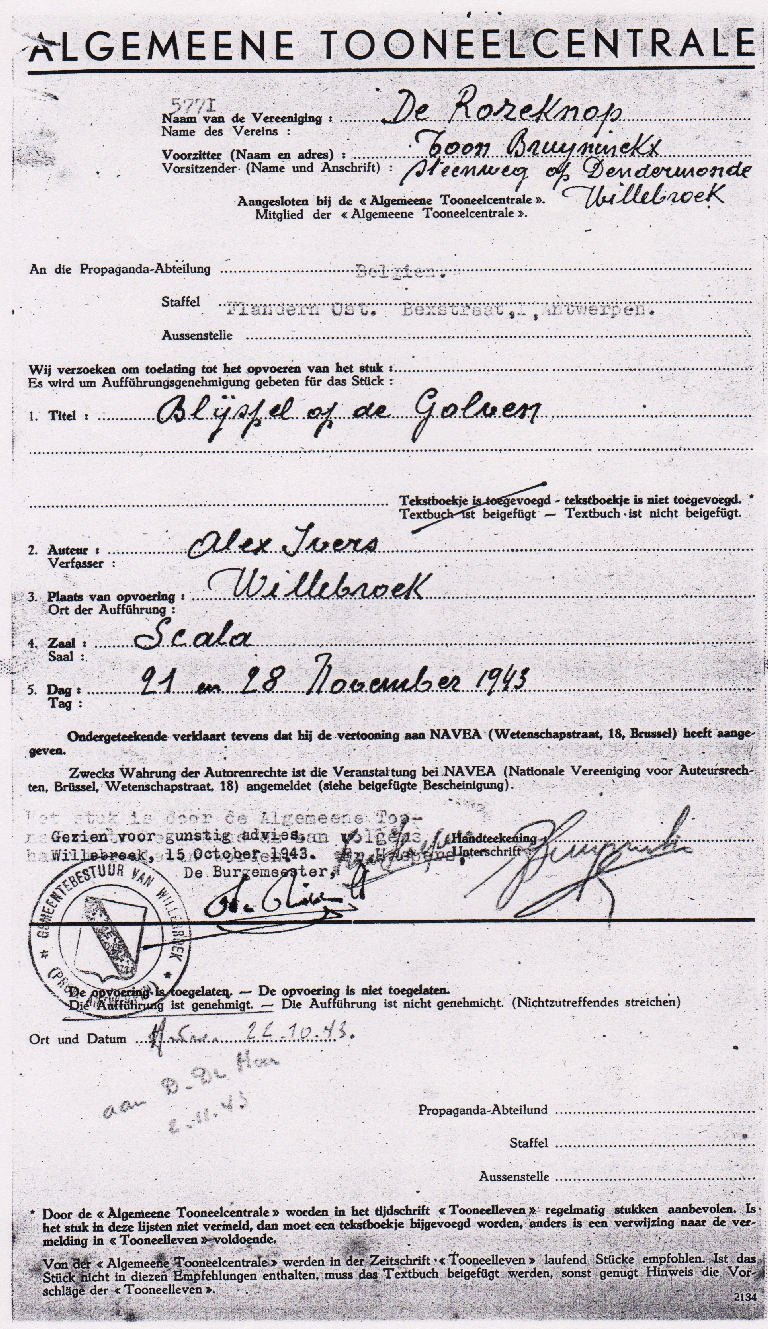 ALGEMEENE TOONEELCENTRALE
5771
Naam van de Vereeniging : De Rozeknop
Name des Vereins :
Voorzitter (Naam en adres) : Toon Bruyninckx
Vorsitzender (Name und Anschrift) : steenweg op Dendermonde
Willebroek
Aangesloten bij de « Algemeene Tooneelcentrale ».
Mitglied der « Algemeene Tooneelcentrale ».
An die Propaganda-Abteilung Belgien.
Staffel Flandern Ost. Bexstraat,1,Antwerpen.
Aussenstelle
Wij verzoeken om toelating tot het opvoeren van het stuk :
Es wird um Aufführungsgenehmigung gebeten für das Stück :
1. Titel : Blijspel op de Golven
Tekstboekje is toegevoegd - tekstboekje is niet toegevoegd. *
Textbuch ist beigefügt — Textbuch ist nicht beigefügt.
2. Auteur : Alex Ivers
Verfasser :
3. Plaats van opvoering : Willebroek
Ort der Aufführung :
4. Zaal : Scala
Saal :
5. Dag : 21 en 28 November 1943
Tag :
Ondergeteekende verklaart tevens dat hij de vertooning aan NAVEA (Wetenschapstraat, 18, Brussel) heeft aange-
geven.
Zwecks Wahrung der Autorenrechte ist die Veranstaltung bei NAVEA (Nationale Vereeniging voor Auteursrech-
ten, Brüssel, Wetenschapstraat, 18) angemeldet (siehe beigefügte Bescheinigung).
Het stuk is door de Algemeene Too-
Gezien voor gunstig advies.
Handteekening
Willebroek, 15 October 1943.
Unterschrift
De Burgemeester,
GEMEENTEBESTUUR VAN WILLEBROEK
De opvoering is toegelaten. — De opvoering is niet toegelaten.
Die Aufführung ist genehmigt. — Die Aufführung ist nicht genehmicht. (Nichtzutreffendes streichen)
Ort und Datum 22.10.43.
aan D. De Han
2.11.43
Propaganda-Abteilund
Staffel
Aussenstelle
* Door de « Algemeene Tooneelcentrale » worden in het tijdschrift « Tooneelleven » regelmatig stukken aanbevolen. Is
het stuk in deze lijsten niet vermeld, dan moet een tekstboekje bijgevoegd worden, anders is een verwijzing naar de ver-
melding in « Tooneelleven » voldoende.
Von der « Algemeene Tooneelcentrale » werden in der Zeitschrift « Tooneelleven » laufend Stücke empfohlen. Ist das
Stück nicht in diezen Empfehlungen enthalten, muss das Textbuch beigefügt werden, sonst genugt Hinweis die Vor-
schläge der « Tooneelleven ».
2134